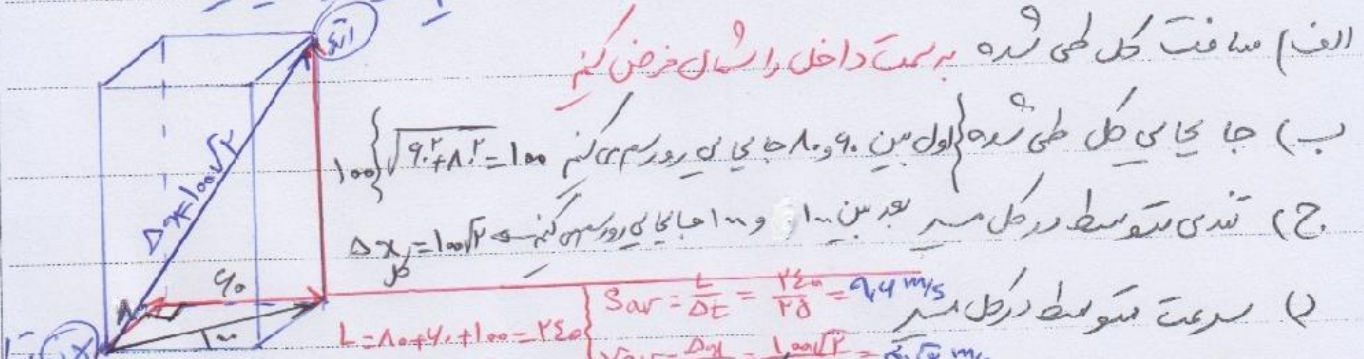 الف) مسافت کل طی شده به سمت داخل را شمال فرض کنیم
ب) جا بجایی کل طی شده {اول بین ۶۰ و ۸۰ جا بجایی رو رسم می کنیم √۶۰²+۸۰² = ۱۰۰ } ۱۰۰
ج) تندی متوسط در کل مسیر بعد بین ۱۰۰ و ۱۰۰ جابجایی رو رسم می کنیم Δx کل = ۱۰۰√۲
د) سرعت متوسط در کل مسیر
Δx = ۱۰۰√۲
۶۰
۸۰
۱۰۰
L = ۸۰ + ۶۰ + ۱۰۰ = ۲۴۰
Sav = L/Δt = ۲۴۰/۲۵ = ۹,۶ m/s
Vav = Δx/Δt = ۱۰۰√۲/۲۵ = ۴√۲ m/s